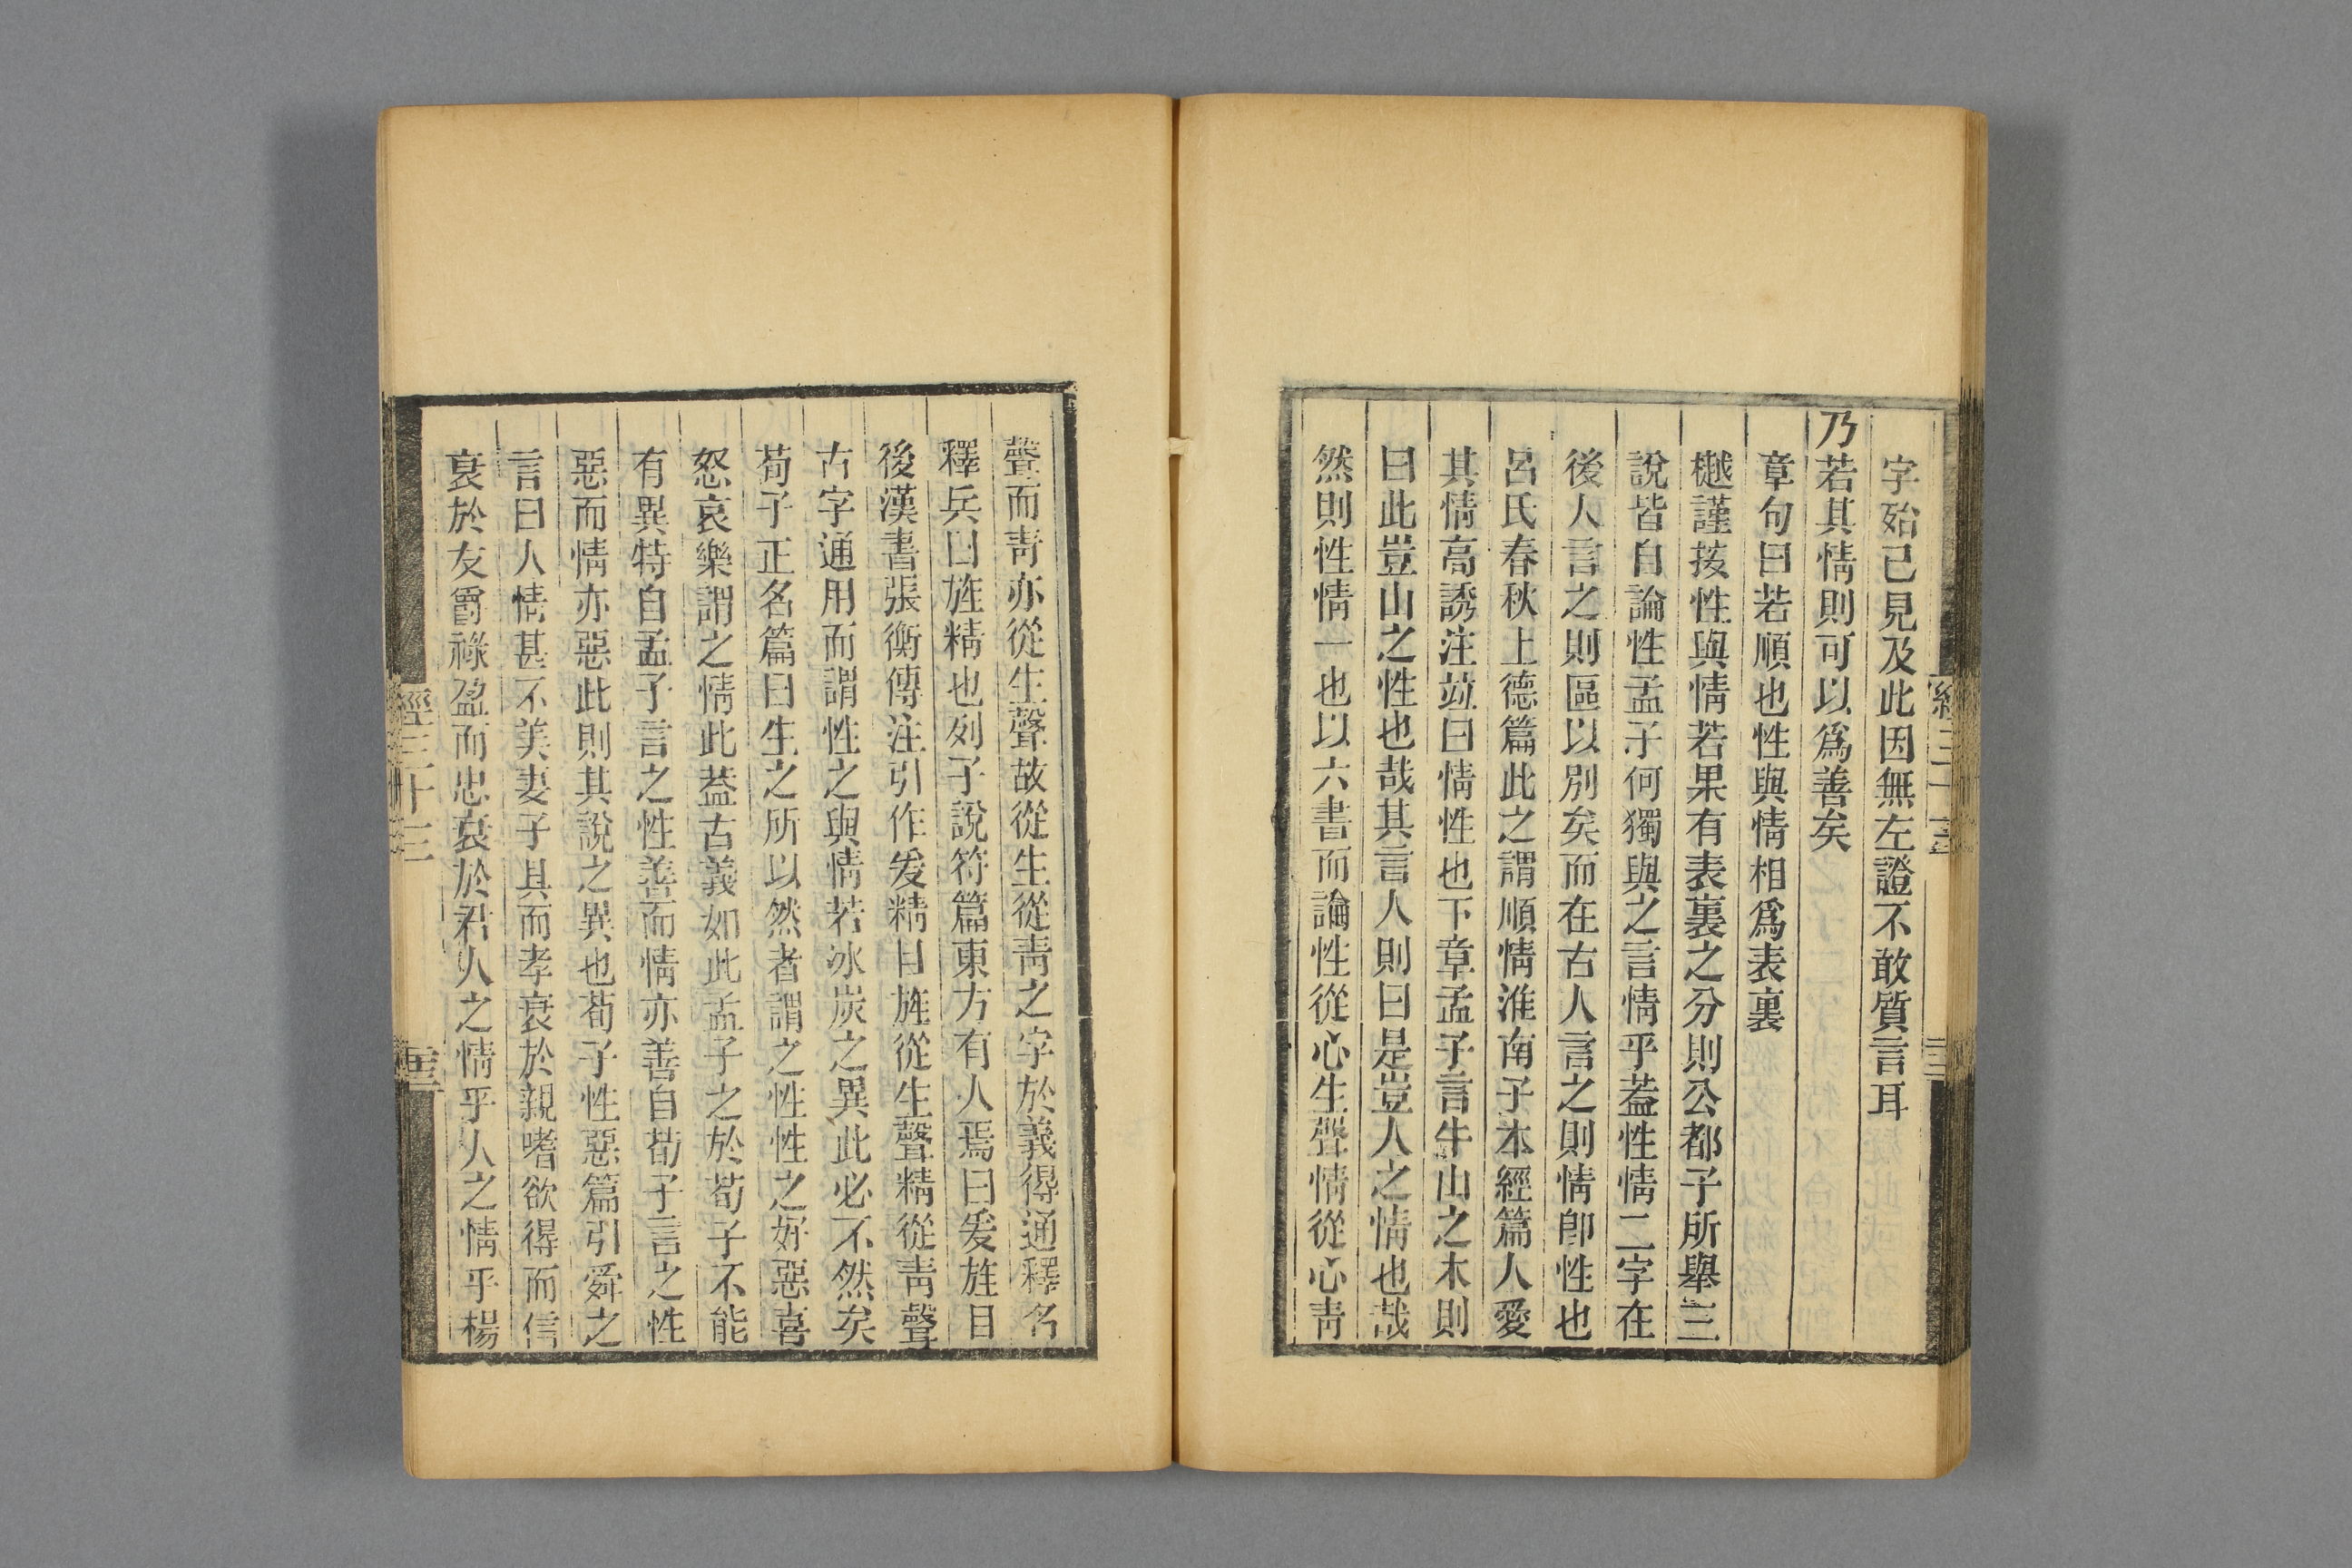 字殆已見及此因無左證不敢質言耳
乃若其情則可以爲善矣
章句曰若順也性與情相爲表裏
樾謹按性與情若果有表裏之分則公都子所舉三
說皆自論性孟子何獨與之言情乎葢性情二字在
後人言之則區以別矣而在古人言之則情卽性也
呂氏春秋上德篇此之謂順情淮南子本經篇人愛
其情高誘注竝曰情性也下章孟子言牛山之木則
曰此豈山之性也哉其言人則曰是豈人之情也哉
然則性情一也以六書而論性從心生聲情從心靑
聲而靑亦從生聲故從生從靑之字於義得通釋名
釋兵曰旌精也列子說符篇東方有人焉曰爰旌目
後漢書張衡傳注引作爰精目旌從生聲精從靑聲
古字通用而謂性之與情若冰炭之異此必不然矣
荀子正名篇曰生之所以然者謂之性性之好惡喜
怒哀樂謂之情此葢古義如此孟子之於荀子不能
有異特自孟子言之性善而情亦善自荀子言之性
惡而情亦惡此則其說之異也荀子性惡篇引舜之
言曰人情甚不美妻子具而孝衰於親嗜欲得而信
衰於友爵祿盈而忠衰於君人之情乎人之情乎楊
經三十三